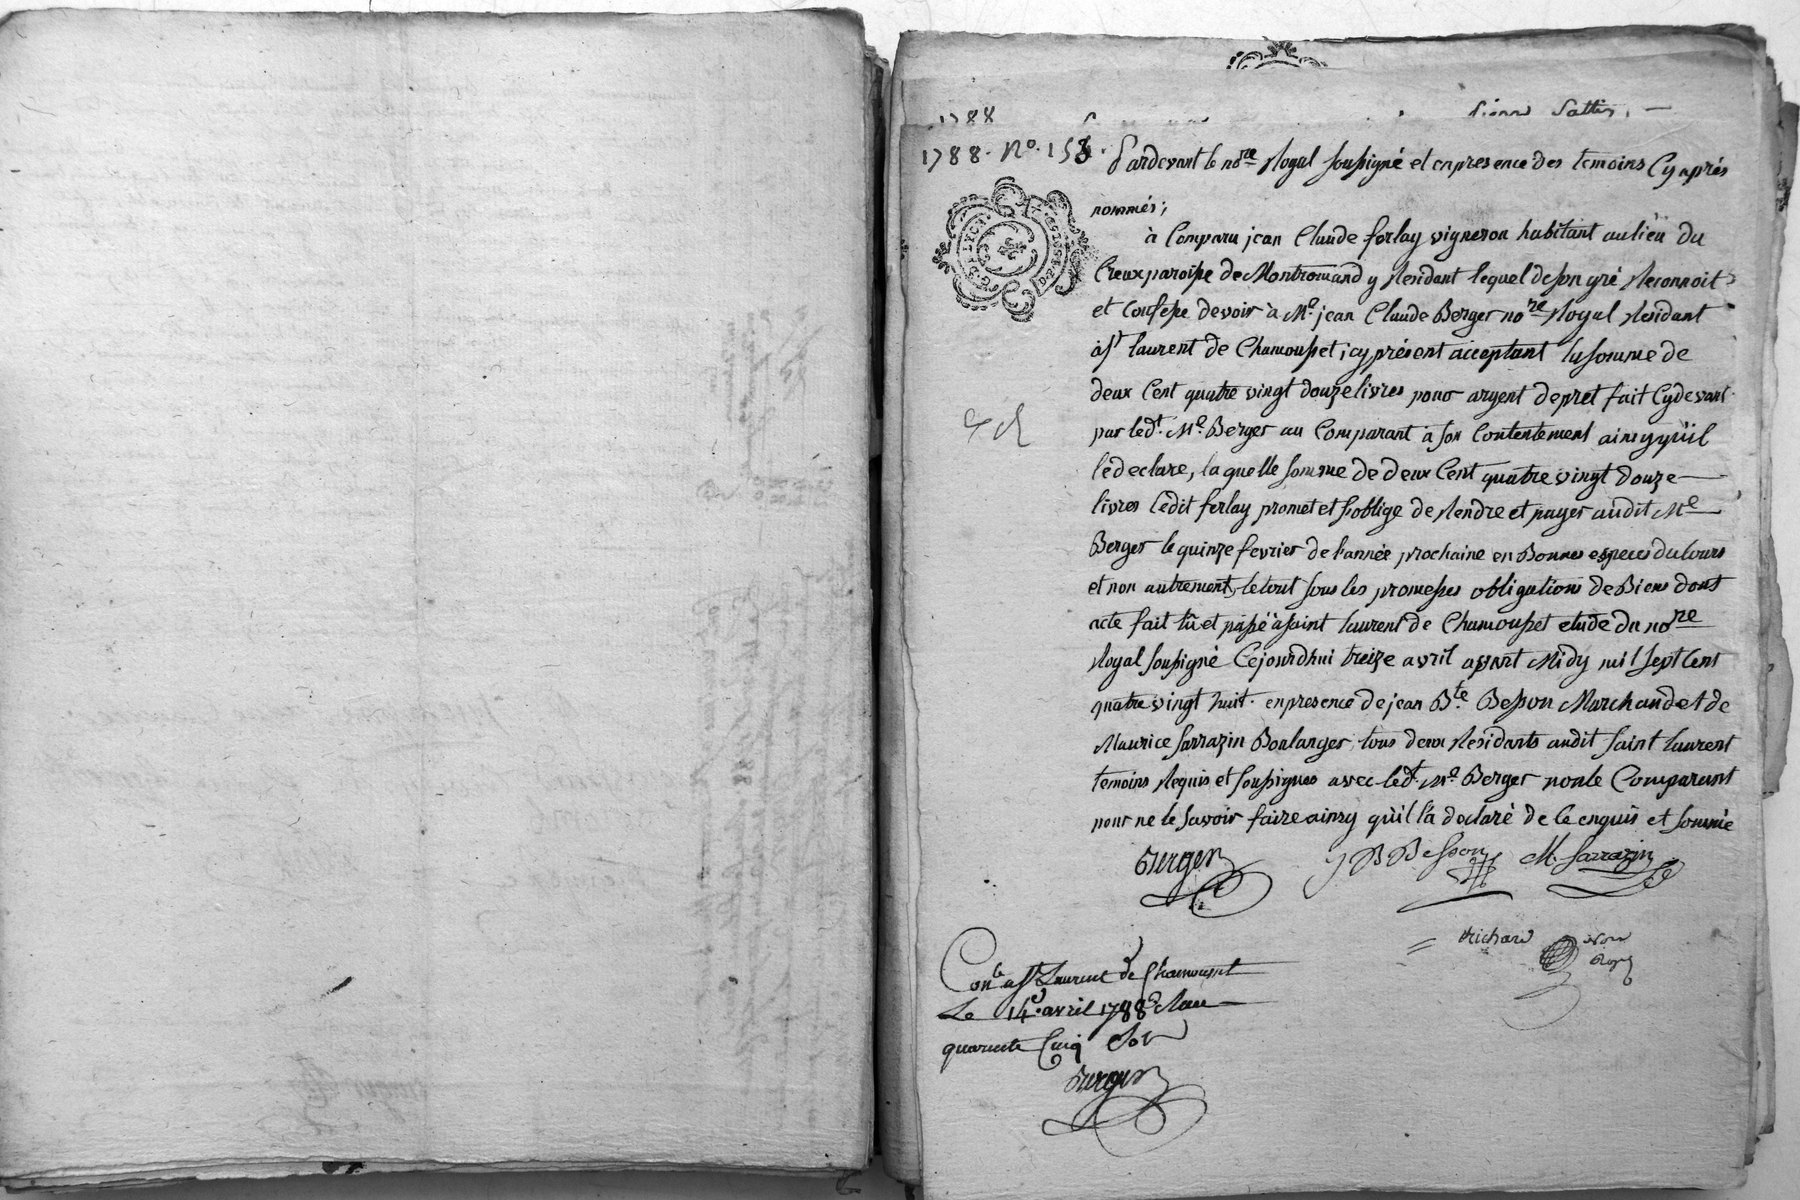 1788
1788. No. 153.
Pardevant le nore Royal soussigné et en presence des temoins Cy aprés
nommés;
G. DE LYON
à Comparu jean Claude ferlay vigneron habitant au lieu du
Creux paroisse de Montromand y Residant lequel de son gré Reconnoit
et Confesse devoir à Me. jean Claude Berger nore Royal Residant
à St laurent de Chamousset, icy présent acceptant la somme de
deux Cent quatre vingt douze livres pour argent de pret fait Cy devant
par ledt. Me. Berger au Comparant à son Contentement ainsy qu'il
lédeclare, la quelle somme de deux Cent quatre vingt douze
livres lédit ferlay promet et s'oblige de Rendre et payer audit Me
Berger le quinze fevrier de l'année prochaine en Bonnes especes du Cours
et non autrement, le tout sous les promesses obligations de Biens dont
acte fait lû et passé à saint laurent de Chamousset etude du nore
Royal soussigné Cejourd'hui treize avril avant Midy mil sept Cent
quatre vingt huit. en presence de jean Bte. Besson Marchand et de
Maurice sarrazin Boulanger, tous deux Residants audit saint laurent
temoins Requis et soussignes avec ledt. Me. Berger non le Comparant
pour ne le savoir faire ainsy qu'il l'a déclaré de Ce enquis et sommé
Berger J B Besson M. Sarrazin
Richard nore
Royal
Conlé a St Laurent de Chamousset
Le 14e. avril 1788 Reçu
quarante Cinq Sols
Berger